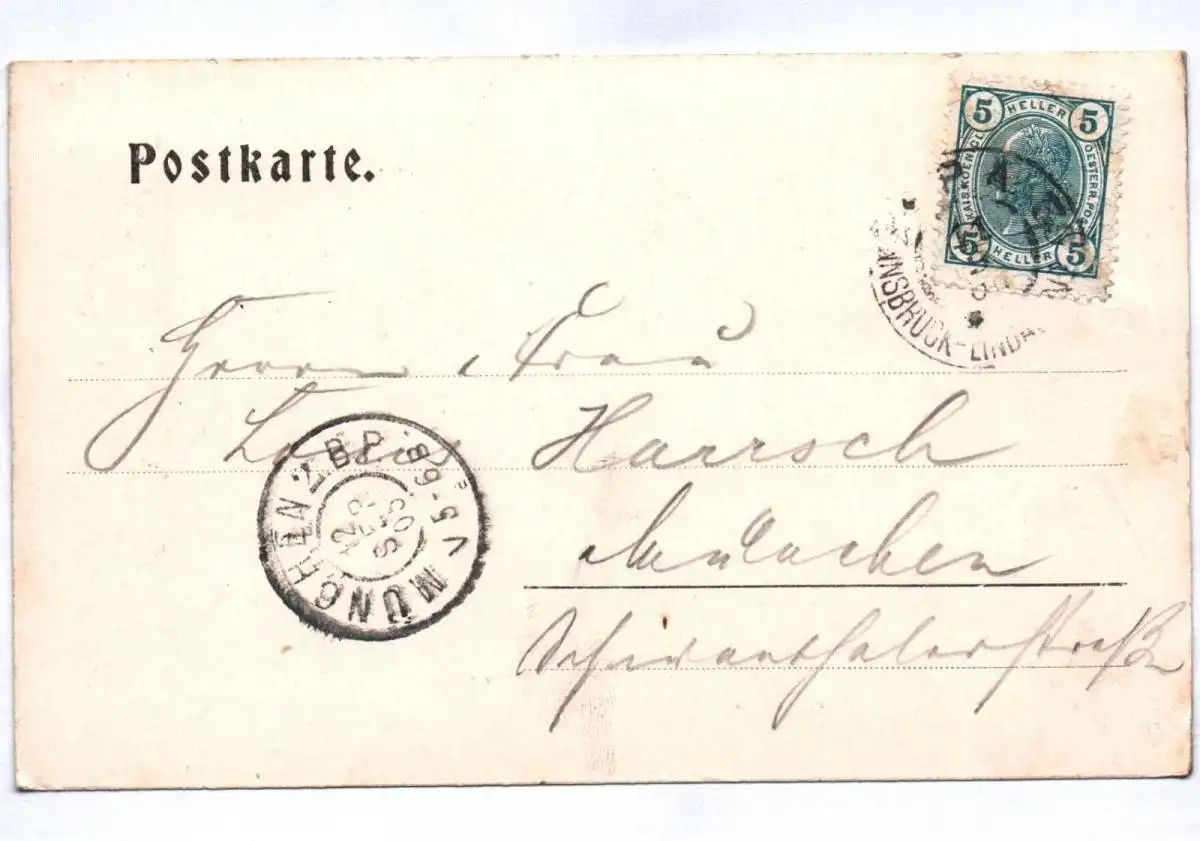 Postkarte.
5 HELLER 5
KAIS. KOEN. OESTERR. POST
5 HELLER 5
INNSBRUCK-LINDAU
Herrn u. Frau
Louis Harrsch
München
Schwanthalerstraße
MÜNCHEN 2 B.P.